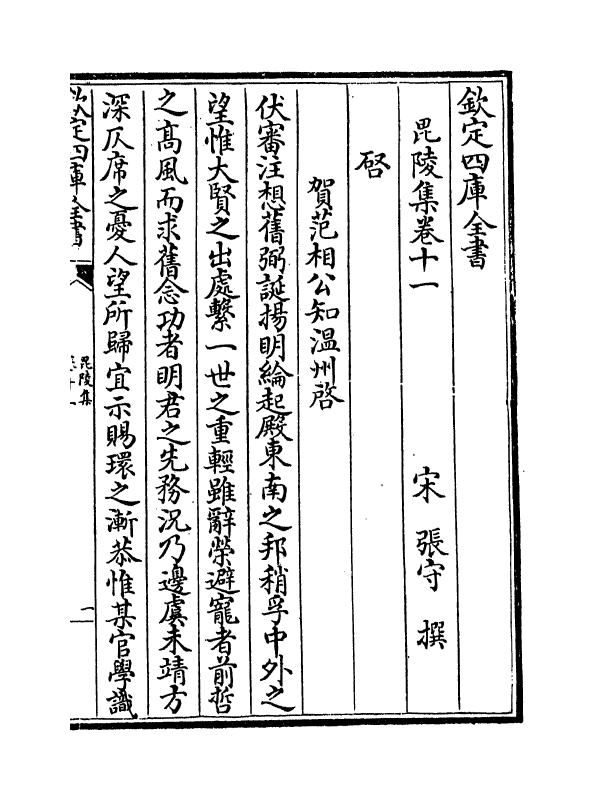 欽定四庫全書
毘陵集卷十一
宋 張守 撰
啓
賀范相公知温州啓
伏審注想舊弼誕揚明綸起殿東南之邦稍孚中外之
望惟大賢之出處繫一世之重輕雖辭榮避寵者前哲
之高風而求舊念功者明君之先務况乃邊虞未靖方
深仄席之憂人望所歸宜示賜環之漸恭惟某官學識
欽定四庫全書
毘陵集
卷十一
一